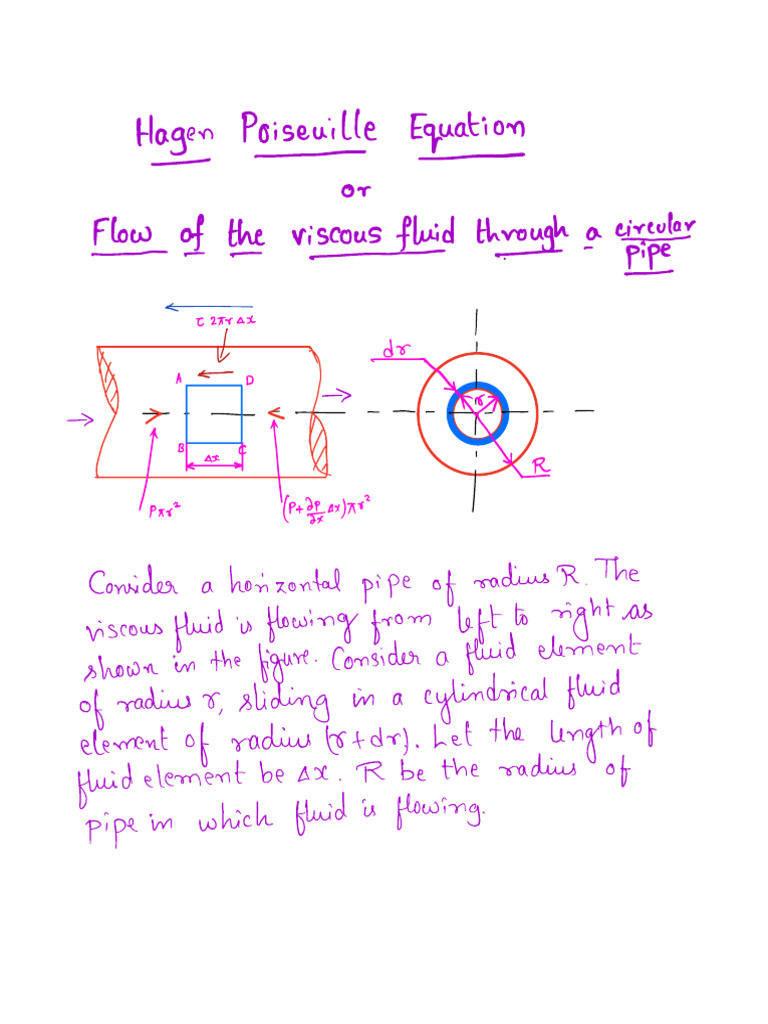 Hagen Poiseuille Equation
or
Flow of the viscous fluid through a circular
pipe
τ 2πr Δx
A D
B C
Δx
Pπr²
(P+∂P/∂x Δx)πr²
dr
r
R
Consider a horizontal pipe of radius R. The
viscous fluid is flowing from left to right as
shown in the figure. Consider a fluid element
of radius r, sliding in a cylindrical fluid
element of radius (r+dr). Let the length of
fluid element be Δx. R be the radius of
pipe in which fluid is flowing.